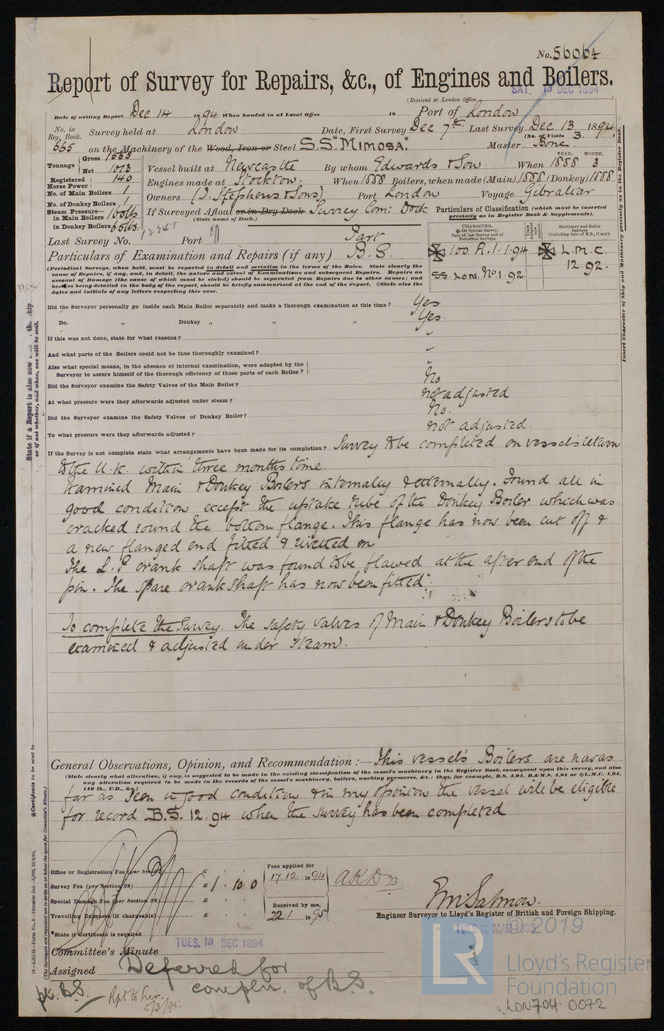 No. 56064
Report of Survey for Repairs, &c., of Engines and Boilers.
(Received at London Office SAT. 15 DEC 1894
Date of writing Report Dec 14 1894 When handed in at Local Office 18 Port of London
No. in Reg. Book. Survey held at London Date, First Survey Dec 7th Last Survey Dec 13 1894
(No. of Visits 3.)
665 on the Machinery of the Wood, Iron or Steel S.S. "Mimosa" Master Bone
Tonnage Gross 1665
Net 1073
Vessel built at Newcastle By whom Edwards & Son When YEAR. 1888 MONTH. 3
Registered Horse Power 143
Engines made at Stockton When 1888 Boilers, when made (Main) 1888 (Donkey) 1888
No. of Main Boilers 1
No. of Donkey Boilers 1
Owners (J. Stephens & Sons) Port London Voyage Gibraltar
Steam Pressure in Main Boilers
in Donkey Boilers
If Surveyed Afloat or in Dry Dock Surrey Com: Dock
(State name of Dock.)
Particulars of Classification (which must be inserted precisely as in Register Book & Supplements).
Last Survey No. Port
Part
Particulars of Examination and Repairs (if any) B.S.
100 A.1. 1.94
SS. Lon. No1.92
L.M.C. 12.92.
(Periodical Surveys, when held, must be reported in detail and seriatim in the terms of the Rules. State clearly the cause of Repairs, if any, and, in detail, the nature and extent of Examinations and subsequent Repairs. Repairs on account of Damage (the cause of which must be stated) should be separated from Repairs due to other causes; and besides being detailed in the body of the report, should be briefly summarised at the end of the report. State also the dates and initials of any letters respecting this case.
Did the Surveyor personally go inside each Main Boiler separately and make a thorough examination at this time? Yes
Do. " Donkey " " " Yes
If this was not done, state for what reasons? "
And what parts of the Boilers could not be thoroughly examined? "
Also what special means, in the absence of internal examination, were adopted by the Surveyor to assure himself of the thorough efficiency of those parts of each Boiler? "
Did the Surveyor examine the Safety Valves of the Main Boiler? No
At what pressure were they afterwards adjusted under steam? not adjusted
Did the Surveyor examine the Safety Valves of Donkey Boiler? No.
To what pressure were they afterwards adjusted? not adjusted.
If the Survey is not complete state what arrangements have been made for its completion? Survey to be completed on vessels return
to the U.K. within three months time
Examined Main & Donkey Boilers internally & externally. Found all in
good condition except the uptake tube of the Donkey Boiler which was
cracked round the bottom flange. This flange has now been cut off &
a new flanged end fitted & rivetted on
The L.P. crank shaft was found to be flawed at the after end of the
pin. The spare crank shaft has now been fitted.
To complete the Survey. The safety valves of Main & Donkey Boilers to be
examined & adjusted under steam.
General Observations, Opinion, and Recommendation:— This vessel's Boilers are now as
(State clearly what alteration, if any, is suggested to be made in the existing classification of the vessel's machinery in the Register Book, consequent upon this survey, and also any alteration required to be made in the records of the vessel's machinery, boilers, working pressures, &c.; thus, for example, B.S. 4,94, B.&M.S. 4,94 or L.M.C. 4,94, 140 lb., F.D., &c.)
far as seen in good condition & in my opinion the vessel will be eligible
for record B.S. 12.94 when the survey has been completed
Office or Registration Fee (per Sec. 28) £
Survey Fee (per Section 28) £ 1 . 10 . 0
Special Damage Fee (per Section 28) £
Travelling Expenses (if chargeable) £
Fees applied for 17.12 1894
Received by me, 22.1 1895
E.M. Salmon.
Engineer Surveyor to Lloyd's Register of British and Foreign Shipping.
*State if Certificate is required
Committee's Minute TUES. 18 DEC 1894
Assigned Deferred for
compln. of B.S.
© 2019
LR
Lloyd's Register
Foundation
LON704 0072